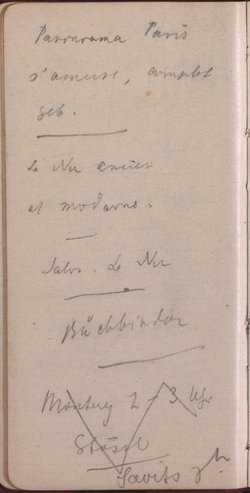 Panorama Paris
s'amuse, complet
geb.
Le Nu ancien
et moderne.
Salon. Le Nu
Buchbinder
Montag 2-3 Uhr
Stössl
Savits